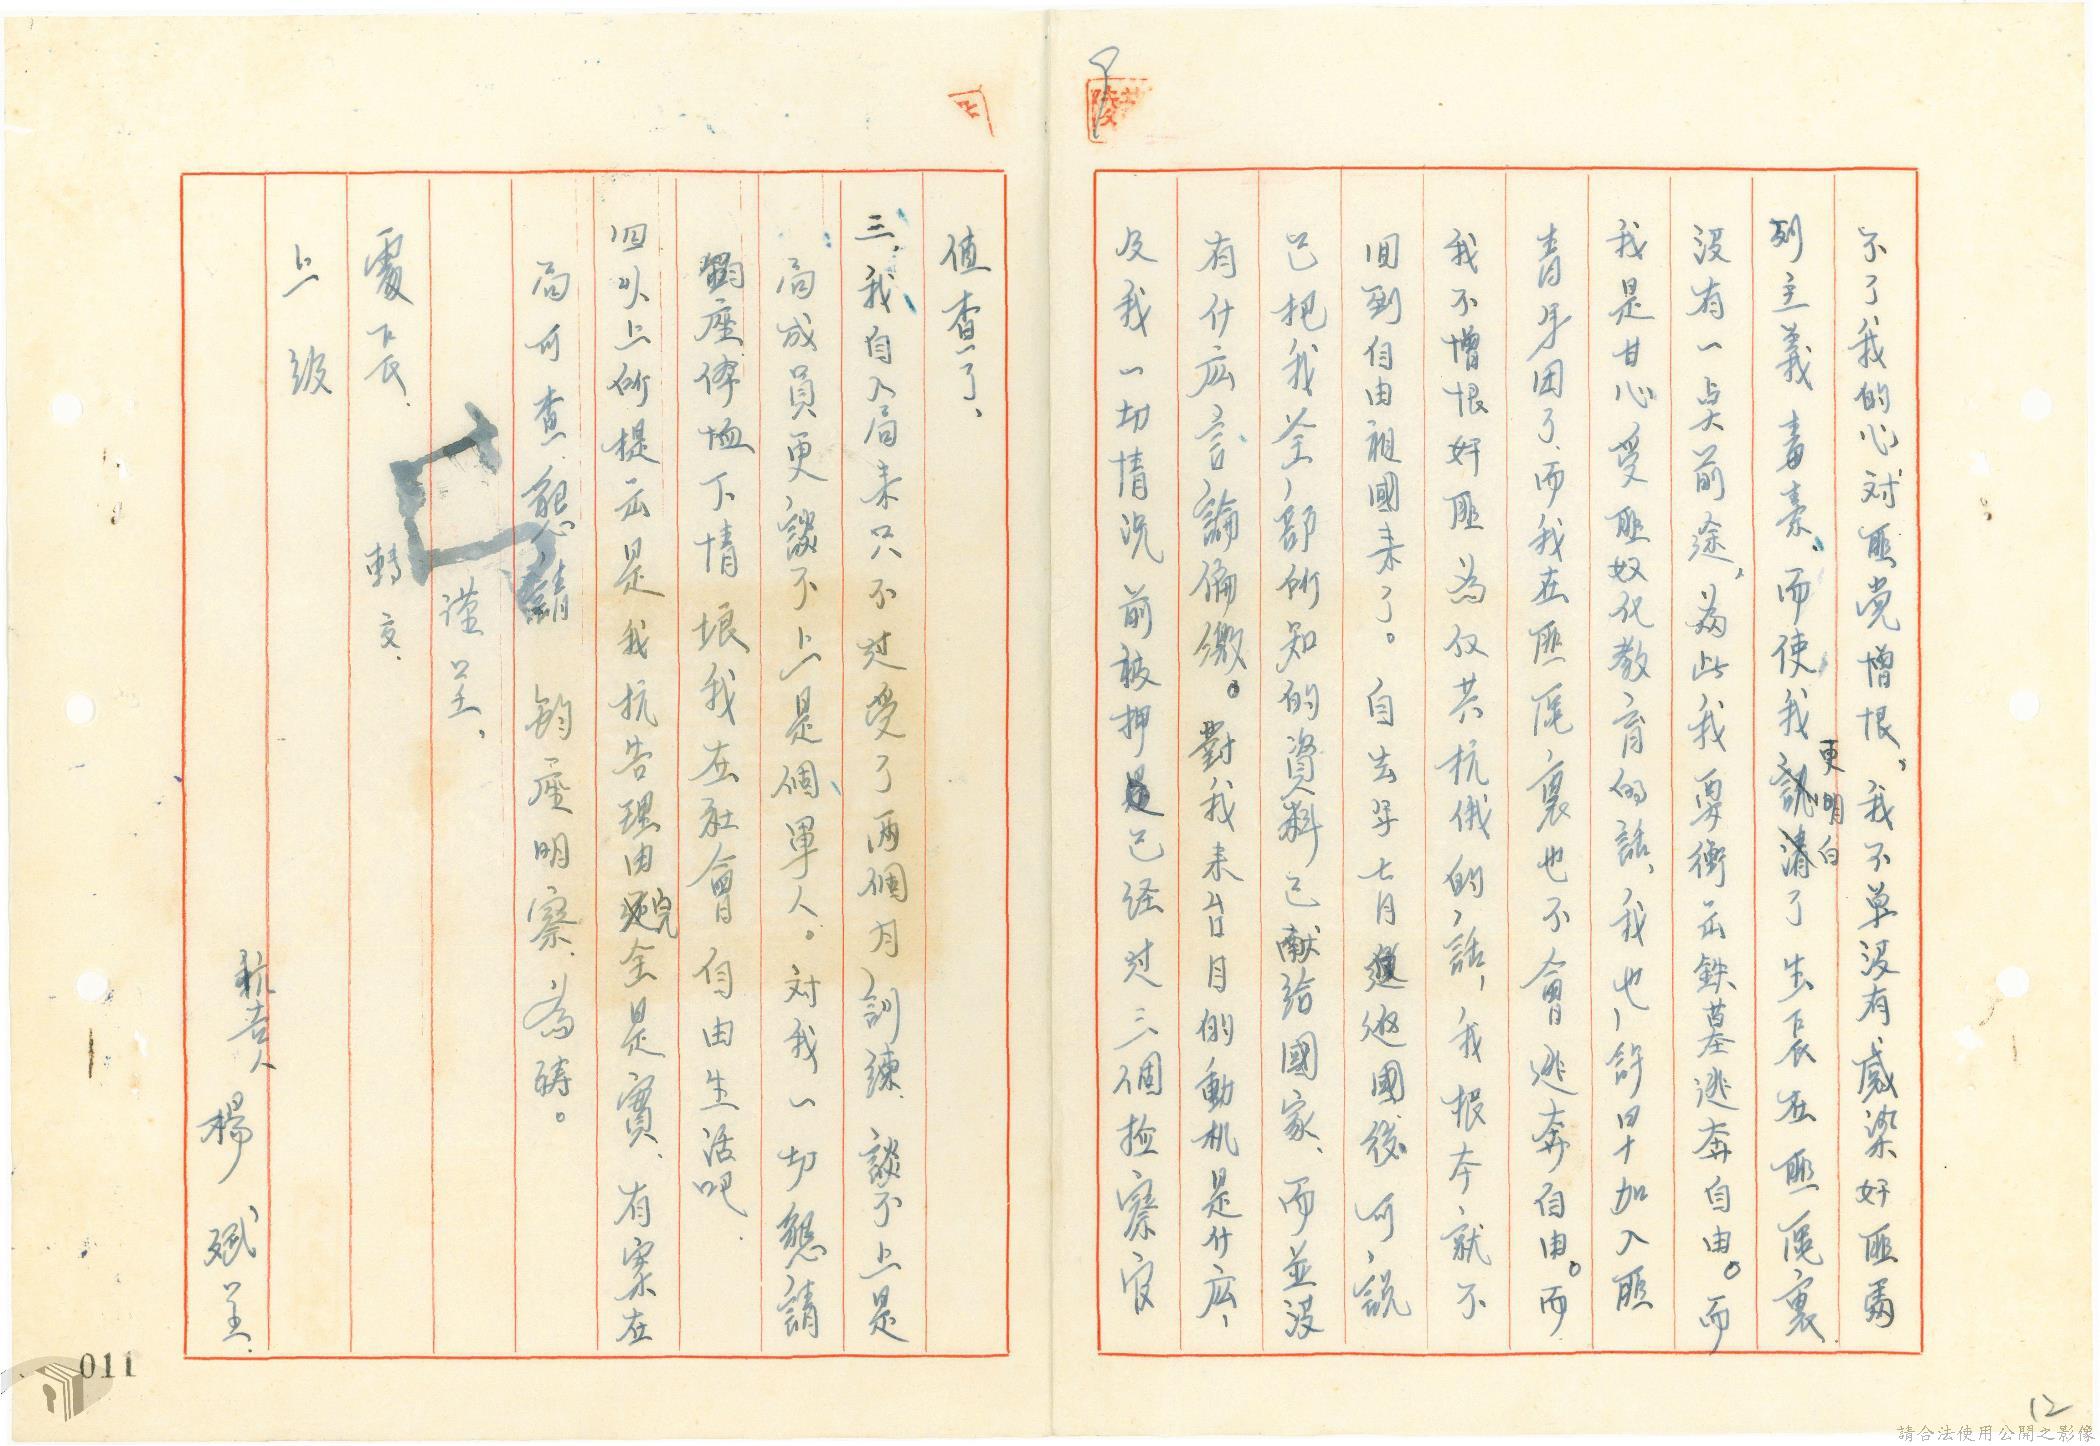 不了我的心対匪党憎恨，我不单没有感染奸匪馬
列主義毒素、而使我更明白了生長在匪區裏
没有一点前途，為此我要衝出鉄幕逃奔自由。而
我是甘心受匪奴化教育的話，我也許早十加入匪
青年团了、而我在匪區裏也不會逃奔自由。而
我不憎恨奸匪為仅共抗俄的話，我根本就不
回到自由祖國来了。自去年七月遣返返國後可說
已把我全部所知的資料已献給國家、而並没
有什広言論偏激。對我来台目的動机是什広，
及我一切情况前被押是已经过三個撿察官
值查了、
三、我自入局来只不过受了两個月訓練、談不上是
局成員更談不上是個軍人。対我一切懇請
鈞座俾恤下情 垠我在社會自由生活吧．
四以上所提云是我抗告理由完全是實、有案在
局可查、懇請 鈞座明察、為禱。
謹呈，
處長、 轉交．
上级
抗告人 楊斌呈．
011
12
請合法使用公開之影像